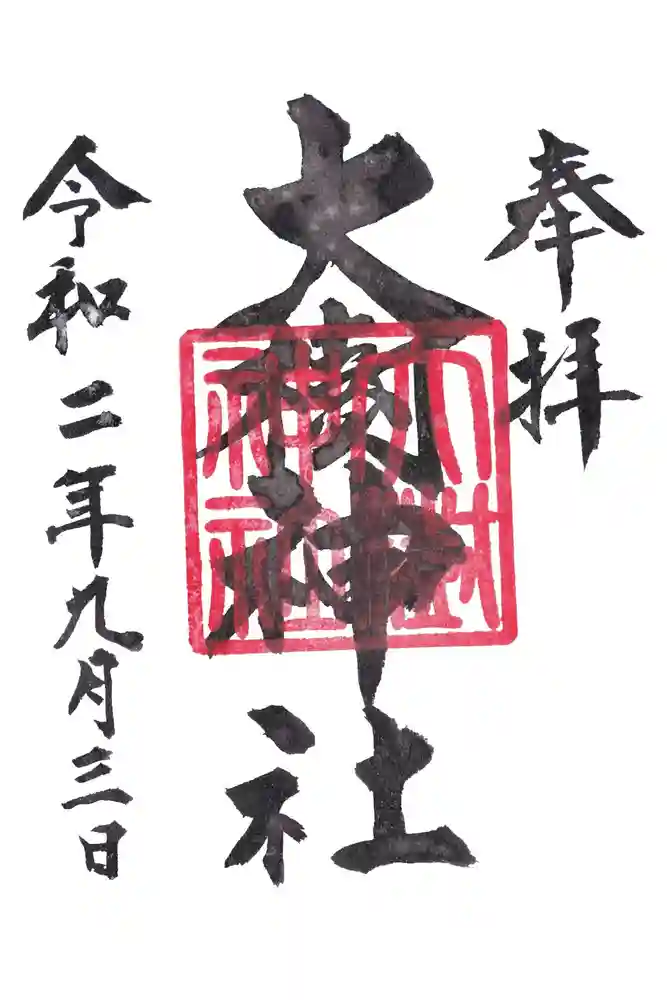 奉拝
大 神社
令和二年九月三日
大 神社